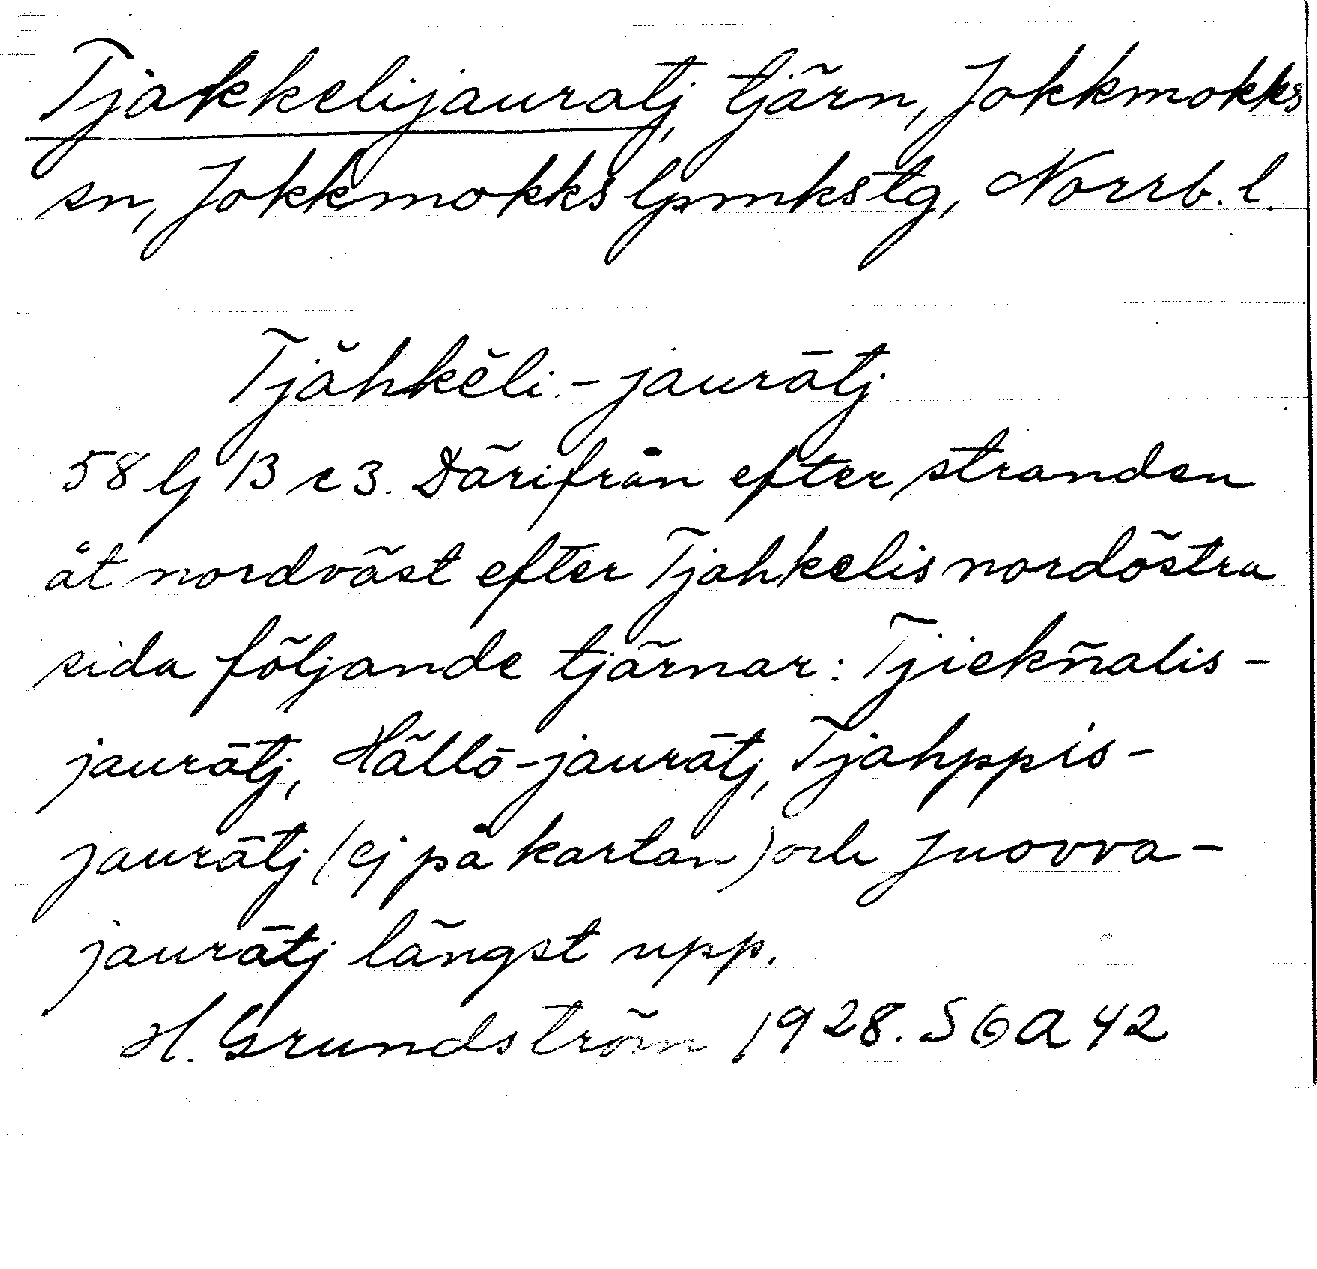 Tjakkelijauratj, tjärn, Jokkmokks
sn, Jokkmokks lpmkstg, Norrb. l.
Tjăhkĕli-jaurātj
58 G B c 3. Därifrån efter stranden
åt nordväst efter Tjahkelis nordöstra
sida följande tjärnar: Tjiekñalis-
jaurātj, Hällō-jaurātj, Tjahppis-
jaurātj (ej på kartan) och Juovva-
jaurātj längst upp.
H. Grundström 1928. S 6 a 42